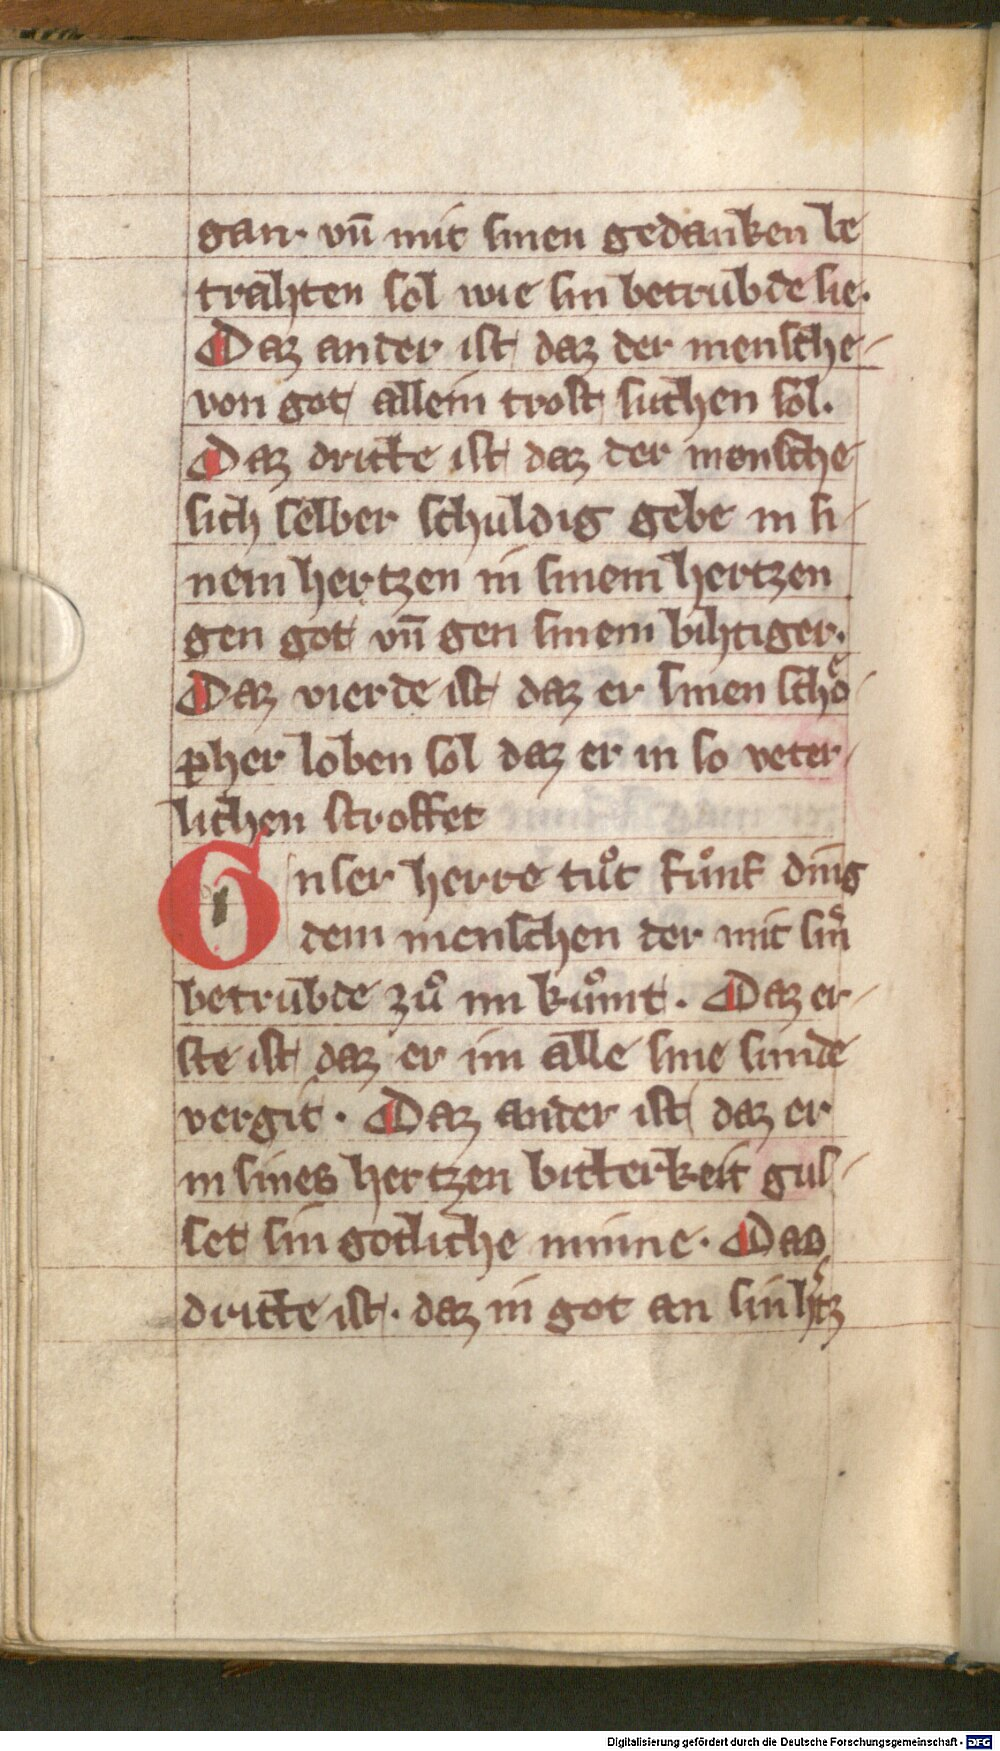 gan. vn̄ mit sinen gedanken be
trahten sol wie sin betrubde sie.
Daz ander ist daz der mensche-
von got allein trost suchen sol.
Daz dritte ist daz der mensche
sich selber schuldig gebe in si-
nem hertzen in sinem hertzen
gen got vn̄ gen sinem bihtiger.
Daz vierde ist daz er sinen schoͤ-
pher loben sol daz er in so veter-
lichen stroffet
Unser herre tuͦt fuͦnf ding
dem menschen der mit sinͤ
betrubde zuͦ im kuͦmt. Daz er-
ste ist daz er im alle sine sunde
vergit. Daz ander ist daz er
in sines hertzen bitterkeit gus-
set sin gotliche minne. Das
dritte ist. daz in got an sin h'tz
Digitalisierung gefördert durch die Deutsche Forschungsgemeinschaft - DFG